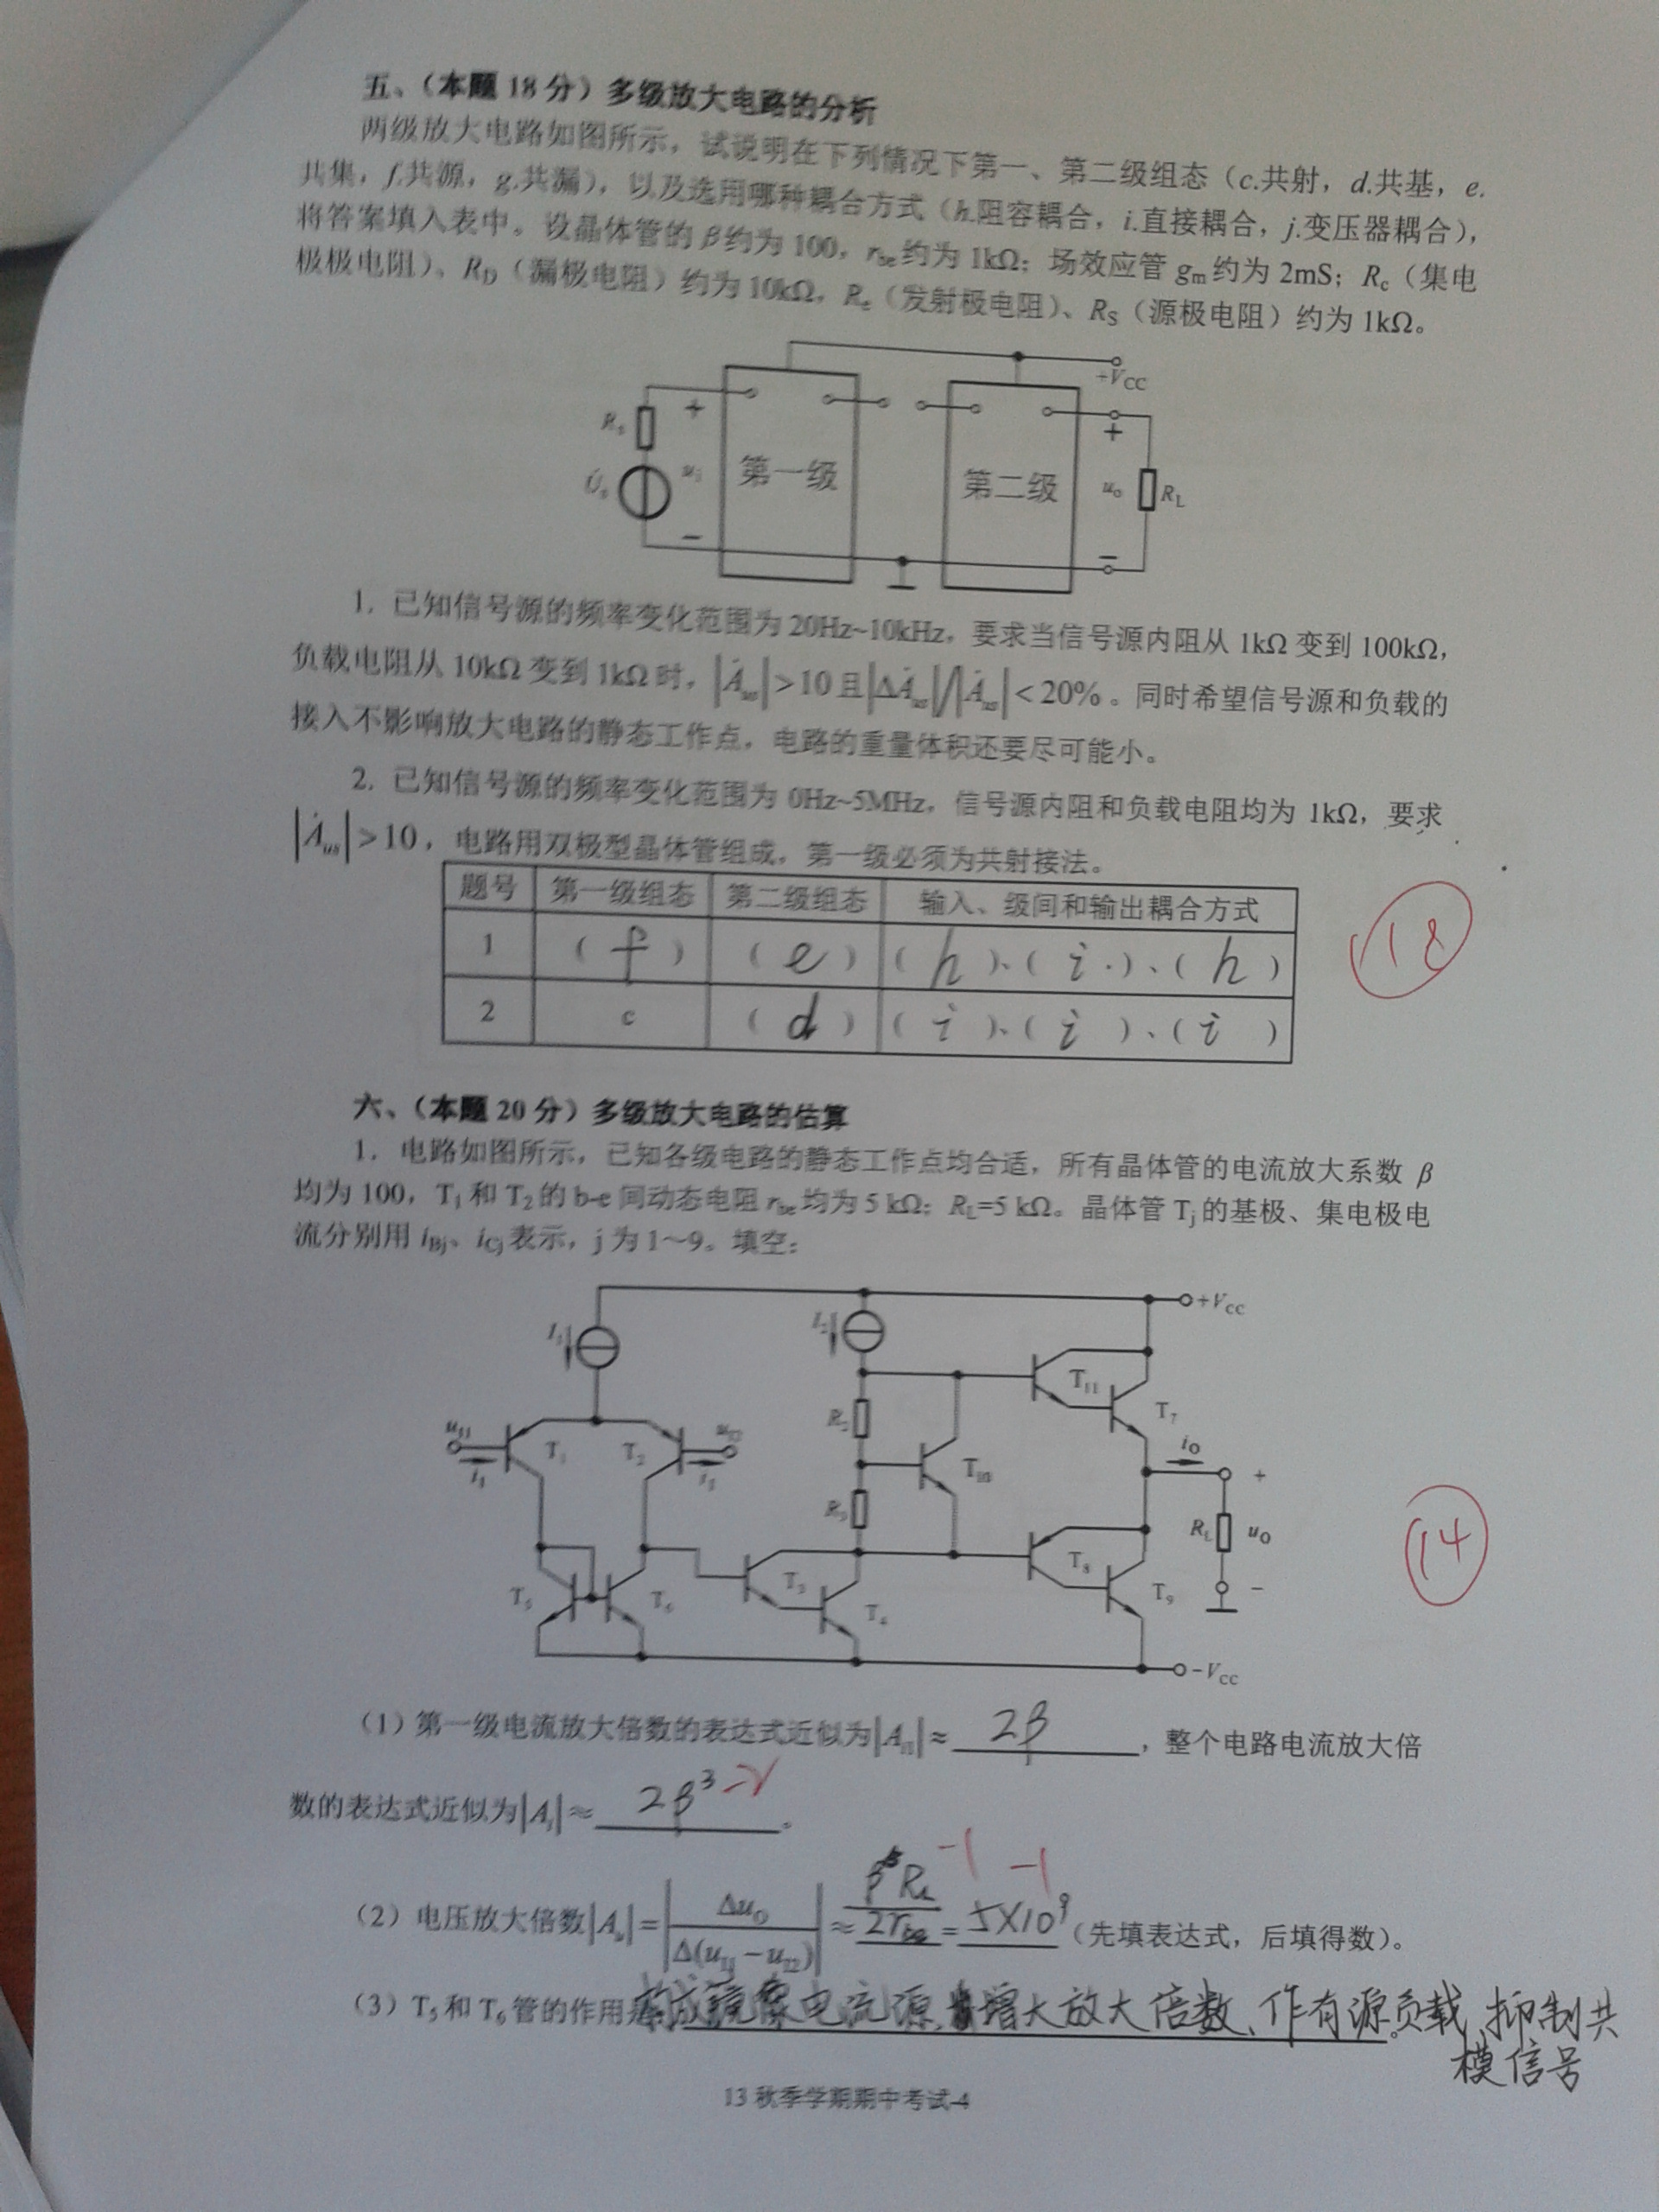 五、（本题 18 分）多级放大电路的分析
两级放大电路如图所示，试说明在下列情况下第一、第二级组态（c.共射，d.共基，e.
共集，f.共源，g.共漏），以及选用哪种耦合方式（h.阻容耦合，i.直接耦合，j.变压器耦合），
将答案填入表中。设晶体管的 β 约为 100，rbe 约为 1kΩ；场效应管 gm 约为 2mS；Rc（集电
极极电阻）、RD（漏极电阻）约为 10kΩ，Re（发射极电阻）、RS（源极电阻）约为 1kΩ。
+VCC
Rs
+
第一级
第二级
+
uo
RL
−
−
1. 已知信号源的频率变化范围为 20Hz~10kHz，要求当信号源内阻从 1kΩ 变到 100kΩ，
负载电阻从 10kΩ 变到 1kΩ 时，|Ȧus| > 10 且 |ΔȦus|/|Ȧus| < 20%。同时希望信号源和负载的
接入不影响放大电路的静态工作点，电路的重量体积还要尽可能小。
2. 已知信号源的频率变化范围为 0Hz~5MHz，信号源内阻和负载电阻均为 1kΩ，要求
|Ȧus| > 10，电路用双极型晶体管组成，第一级必须为共射接法。
题号 第一级组态 第二级组态 输入、级间和输出耦合方式
1 （ f ） （ e ） （ h ）、（ i ）、（ h ）
2 c （ d ） （ i ）、（ i ）、（ i ）
18
六、（本题 20 分）多级放大电路的估算
1. 电路如图所示，已知各级电路的静态工作点均合适，所有晶体管的电流放大系数 β
均为 100，T1 和 T2 的 b-e 间动态电阻 rbe 均为 5 kΩ；RL=5 kΩ。晶体管 Tj 的基极、集电极电
流分别用 iBj、iCj 表示，j 为 1～9。填空：
+VCC
uI1
T1
T2
uI2
T5
T6
T3
T4
T10
T11
T7
T8
T9
iO
+
RL
uO
−
−VCC
14
（1）第一级电流放大倍数的表达式近似为|Ai1| ≈ 2β ，整个电路电流放大倍
数的表达式近似为|Ai| ≈ 2β³ 。
（2）电压放大倍数|Au| = |ΔuO / Δ(uI1 − uI2)| ≈ = 5×10⁹ （先填表达式，后填得数）。
−1 −1
（3）T5 和 T6 管的作用是 增大放大倍数、作有源负载, 抑制共
模信号
13 秋季学期期中考试-4